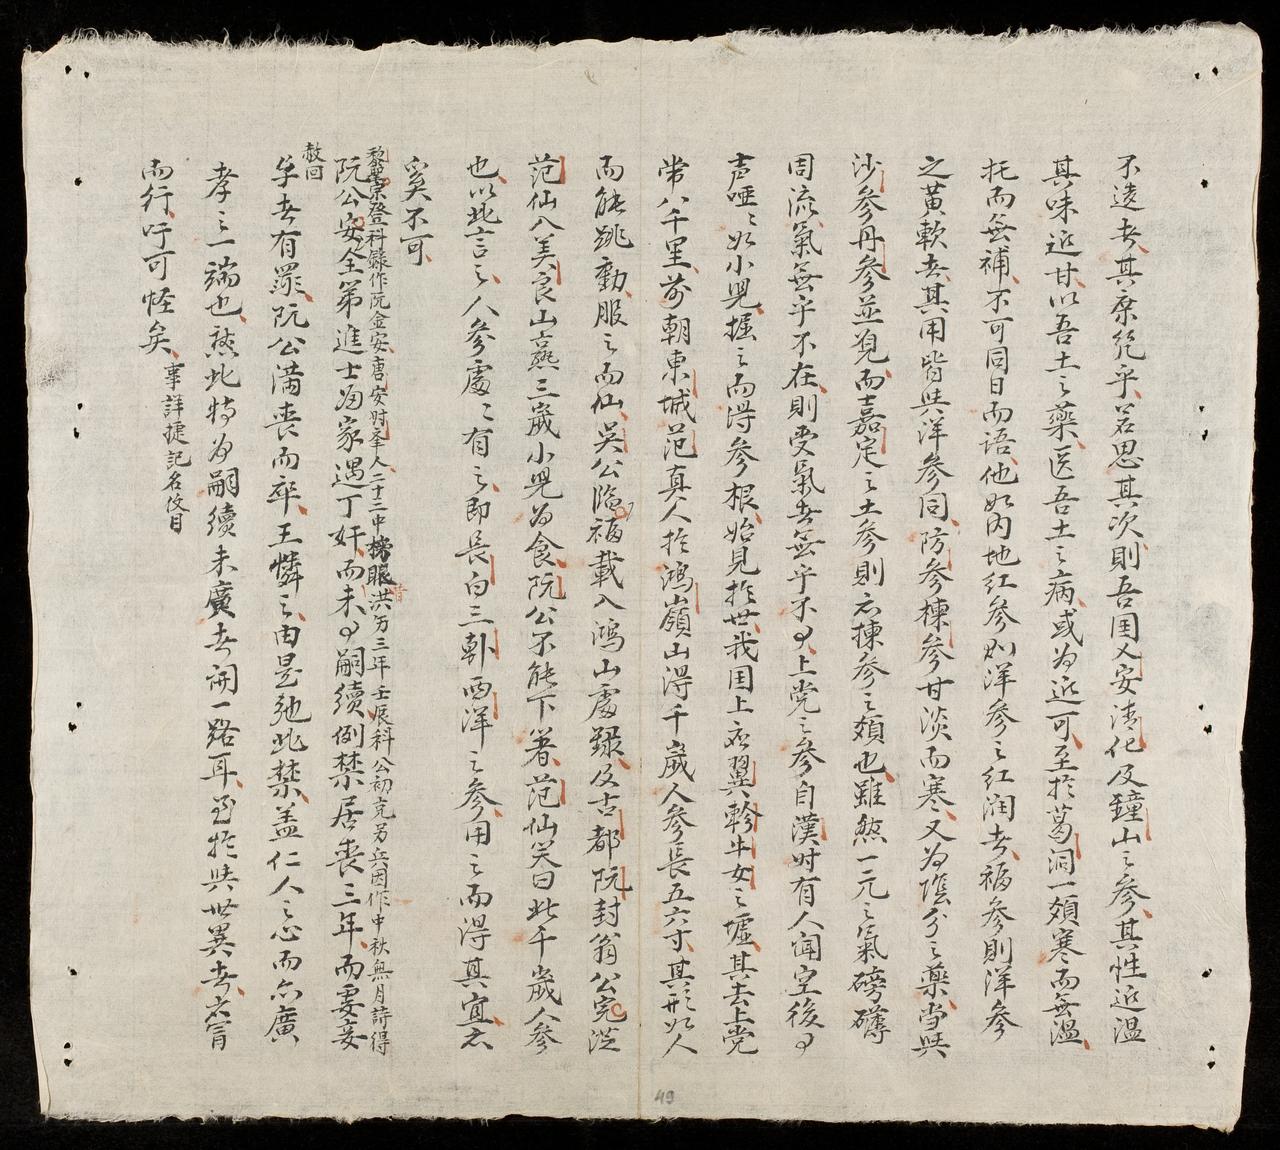 不逮者其庶幾乎若思其次則吾国乂安清化及鐘山之參其性近温
其味近甘以吾土之藥医吾土之病或为近可至於葛洞一類寒而無温
托而無補不可同日而語他如内地红參則洋參之红润者福參則洋參
之黄軟者其用皆與洋參同防參楝參甘淡而寒又为阴分之藥当與
沙參丹參並覓而嘉定之土參則亦揀參之類也雖然一元之氣磅礡
周流氣無乎不在則受氣者無乎不同上党之參自漢时有人闻空後有
声哑哑如小兒掘之而得參根始見於世我国上应翼軫牛女之墟其去上党
常八千里前朝東城范真人於鴻嶺山得千歲人參長五六寸其形如人
而能跳勸服之而仙吴公临福載入鴻山處録及古都阮封翁公完送
范仙入美良山燕三歲小兒为食阮公不能下箸范仙笑曰此千歲人參
也以此言之人參處處有之即長白三韓西洋之參用之而得其宜亦
奚不可
黎聖宗登科録作阮金安唐安时举人二十二中榜眼洪历三年壬辰科公初充另兵因作中秋無月詩得
赦回
阮公安全第進士归家遇丁奸而未有嗣續例禁居喪三年而妻妾
孕者有罪阮公满丧而卒王憐之由是弛此禁盖仁人之心而亦廣
孝之一端也然此特为嗣續未廣者闹一路耳至於與世異者亦冒
而行吁可怪矣事詳捷記名攸目
49